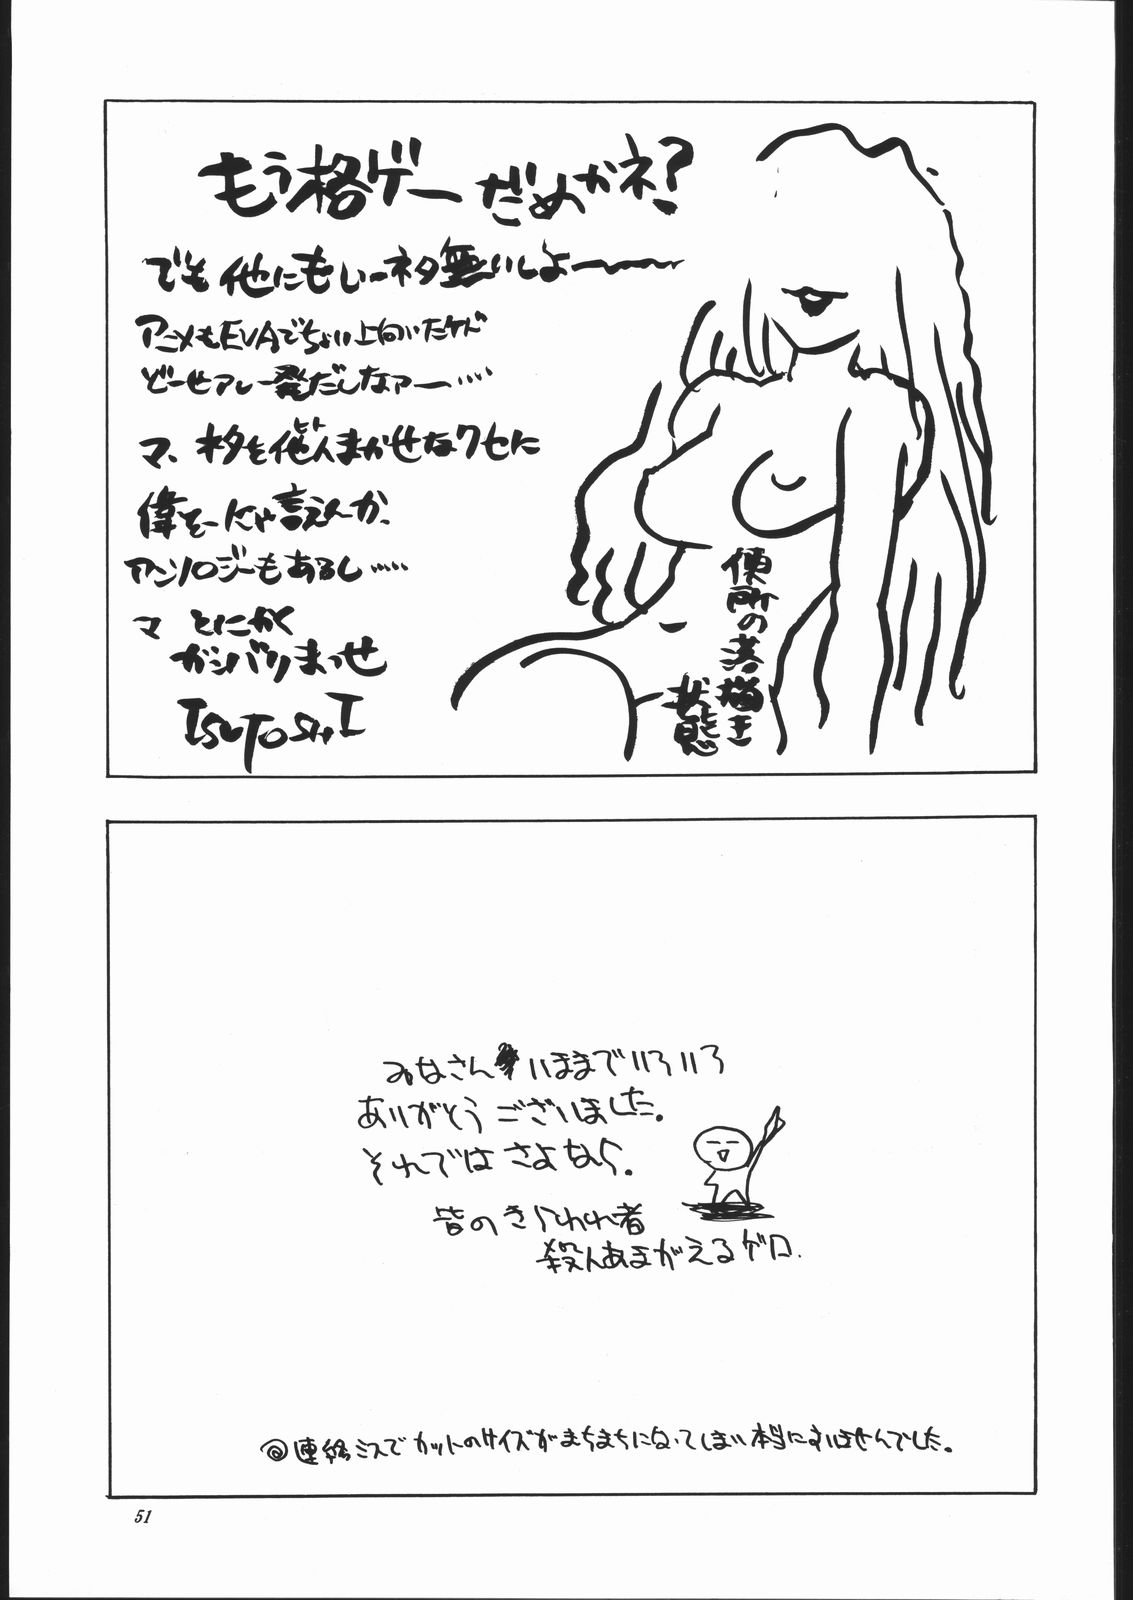 もう格ゲーだめかネ?
でも他にもいーネタ無いしよーーー
アニメもEVAでちょい上向いたケド
どーせアレ一発だしなァー・・・・
マ、ネタを他人まかせなクセに
ヒト
偉そーにゃ言えんか、
アンソロジーもあるし・・・・・
マ とにかく
ガンバりまっせ
ISUTOSHI
便所の落描き
状態
みなさん いままでいろいろ
ありがとうございました。
それではさよなら。
皆のきらわれ者
殺人あまがえるゲロ.
@連絡ミスでカットのサイズがまちまちになってしまい本当にすいませんでした。
51